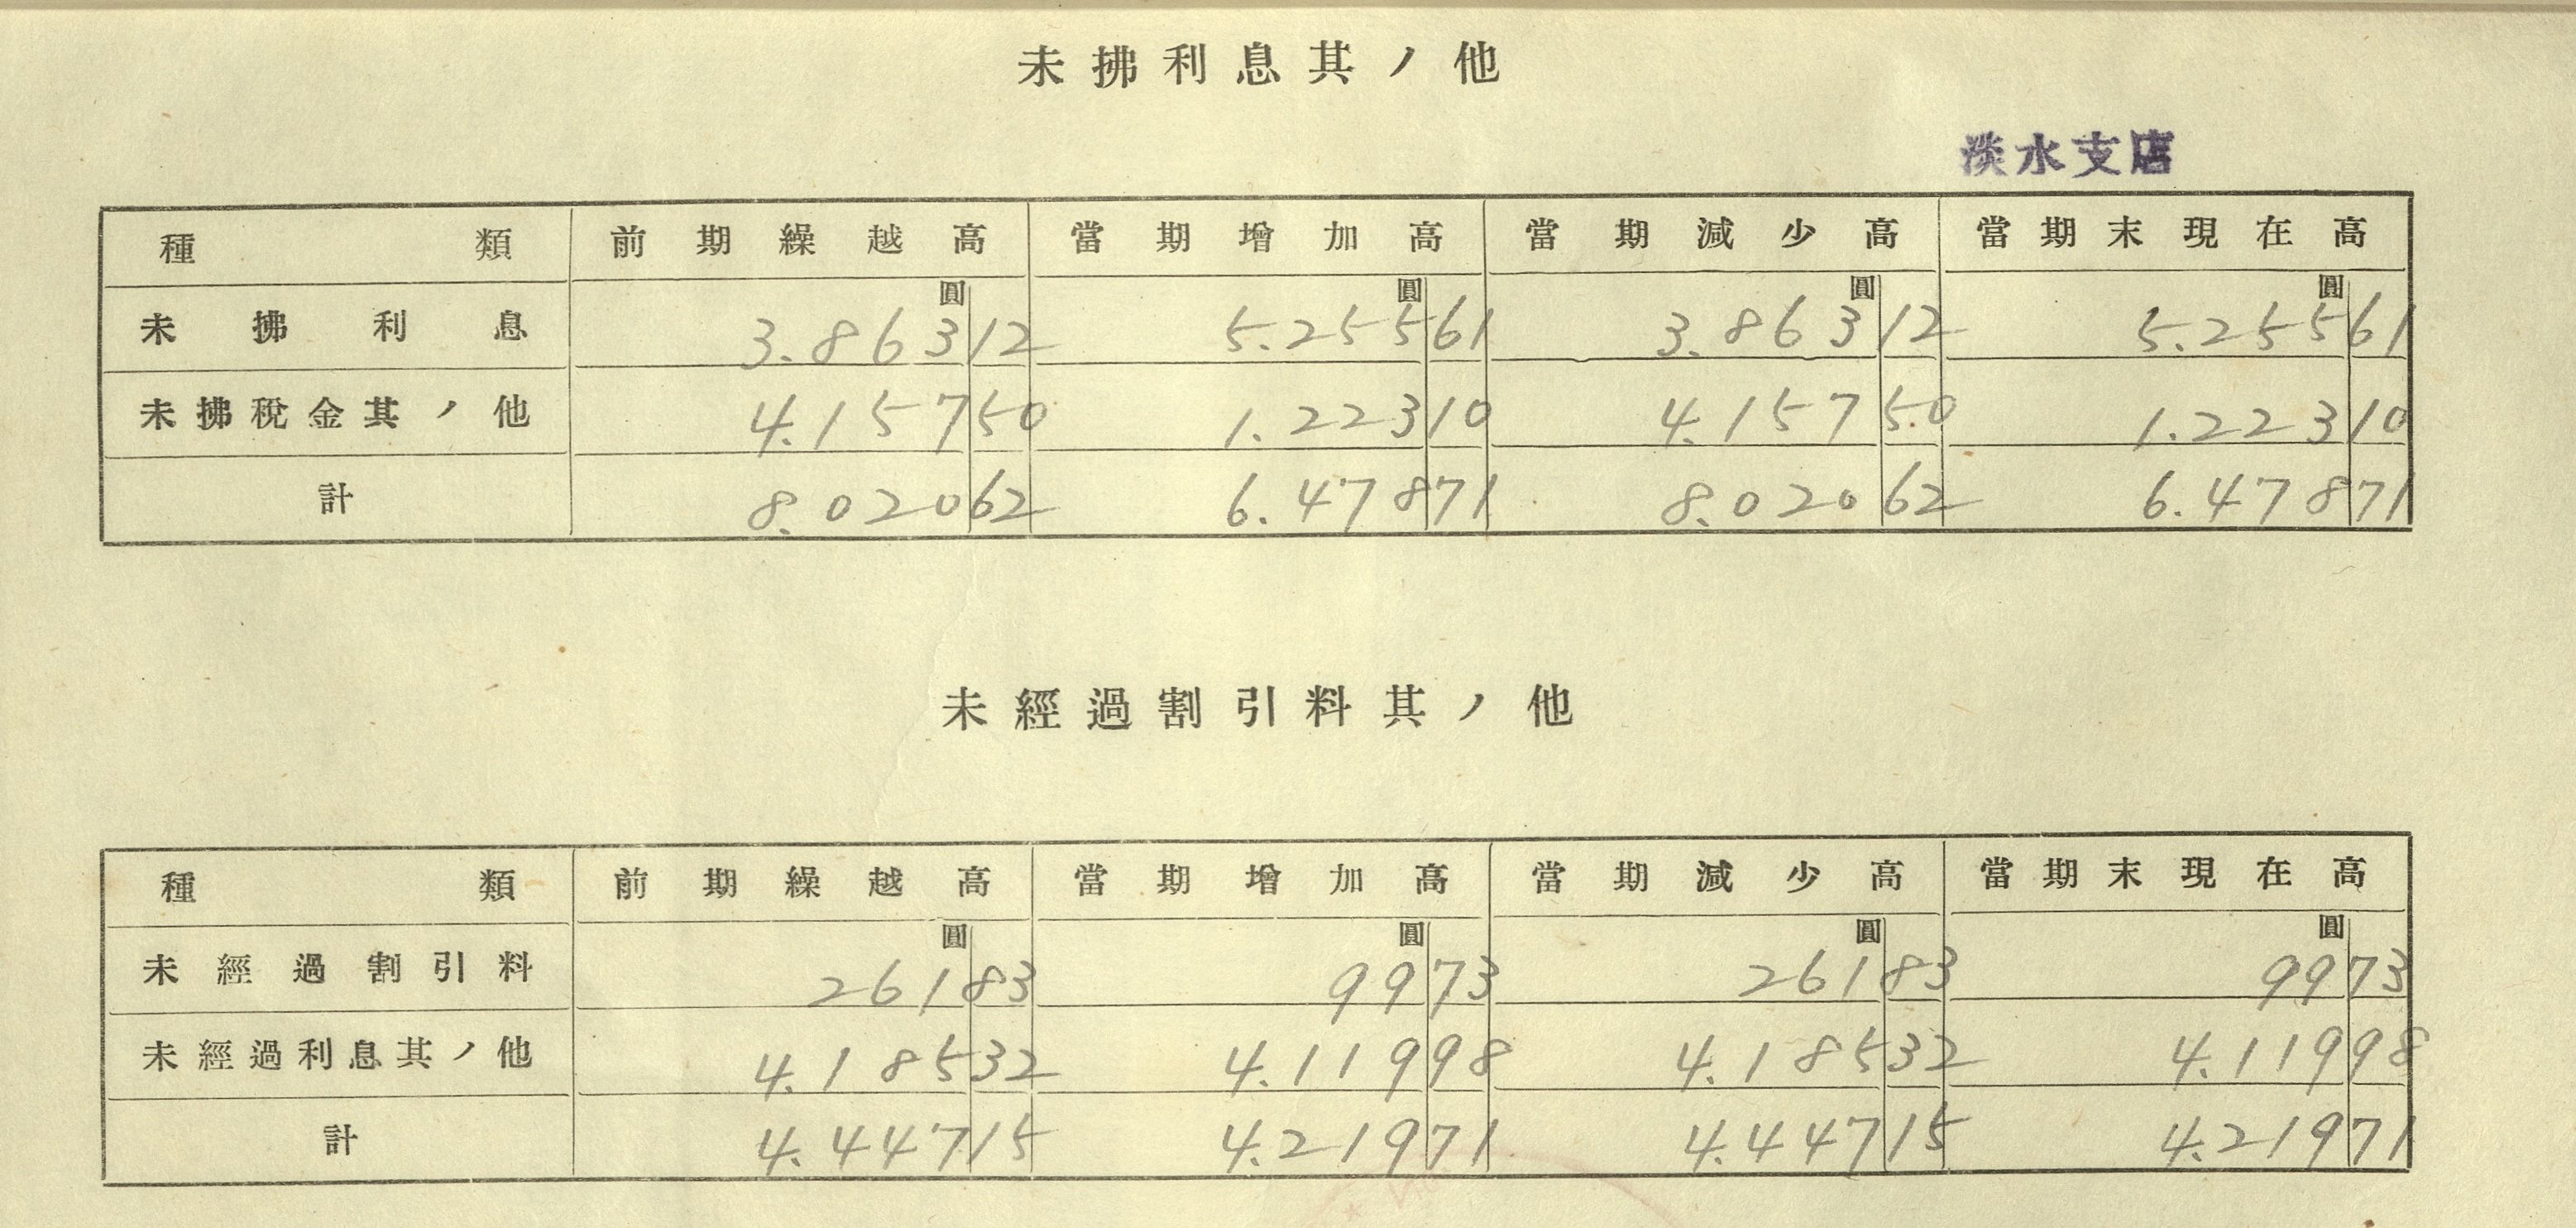 未拂利息其ノ他
淡水支店
種類 前期繰越高 當期增加高 當期減少高 當期末現在高
圓 圓 圓 圓
未拂利息 3.863 12 5.255 61 3.863 12 5.255 61
未拂稅金其ノ他 4.157 50 1.223 10 4.157 50 1.223 10
計 8.020 62 6.478 71 8.020 62 6.478 71
未經過割引料其ノ他
種類 前期繰越高 當期增加高 當期減少高 當期末現在高
圓 圓 圓 圓
未經過割引料 261 83 99 73 261 83 99 73
未經過利息其ノ他 4.185 32 4.119 98 4.185 32 4.119 98
計 4.447 15 4.219 71 4.447 15 4.219 71